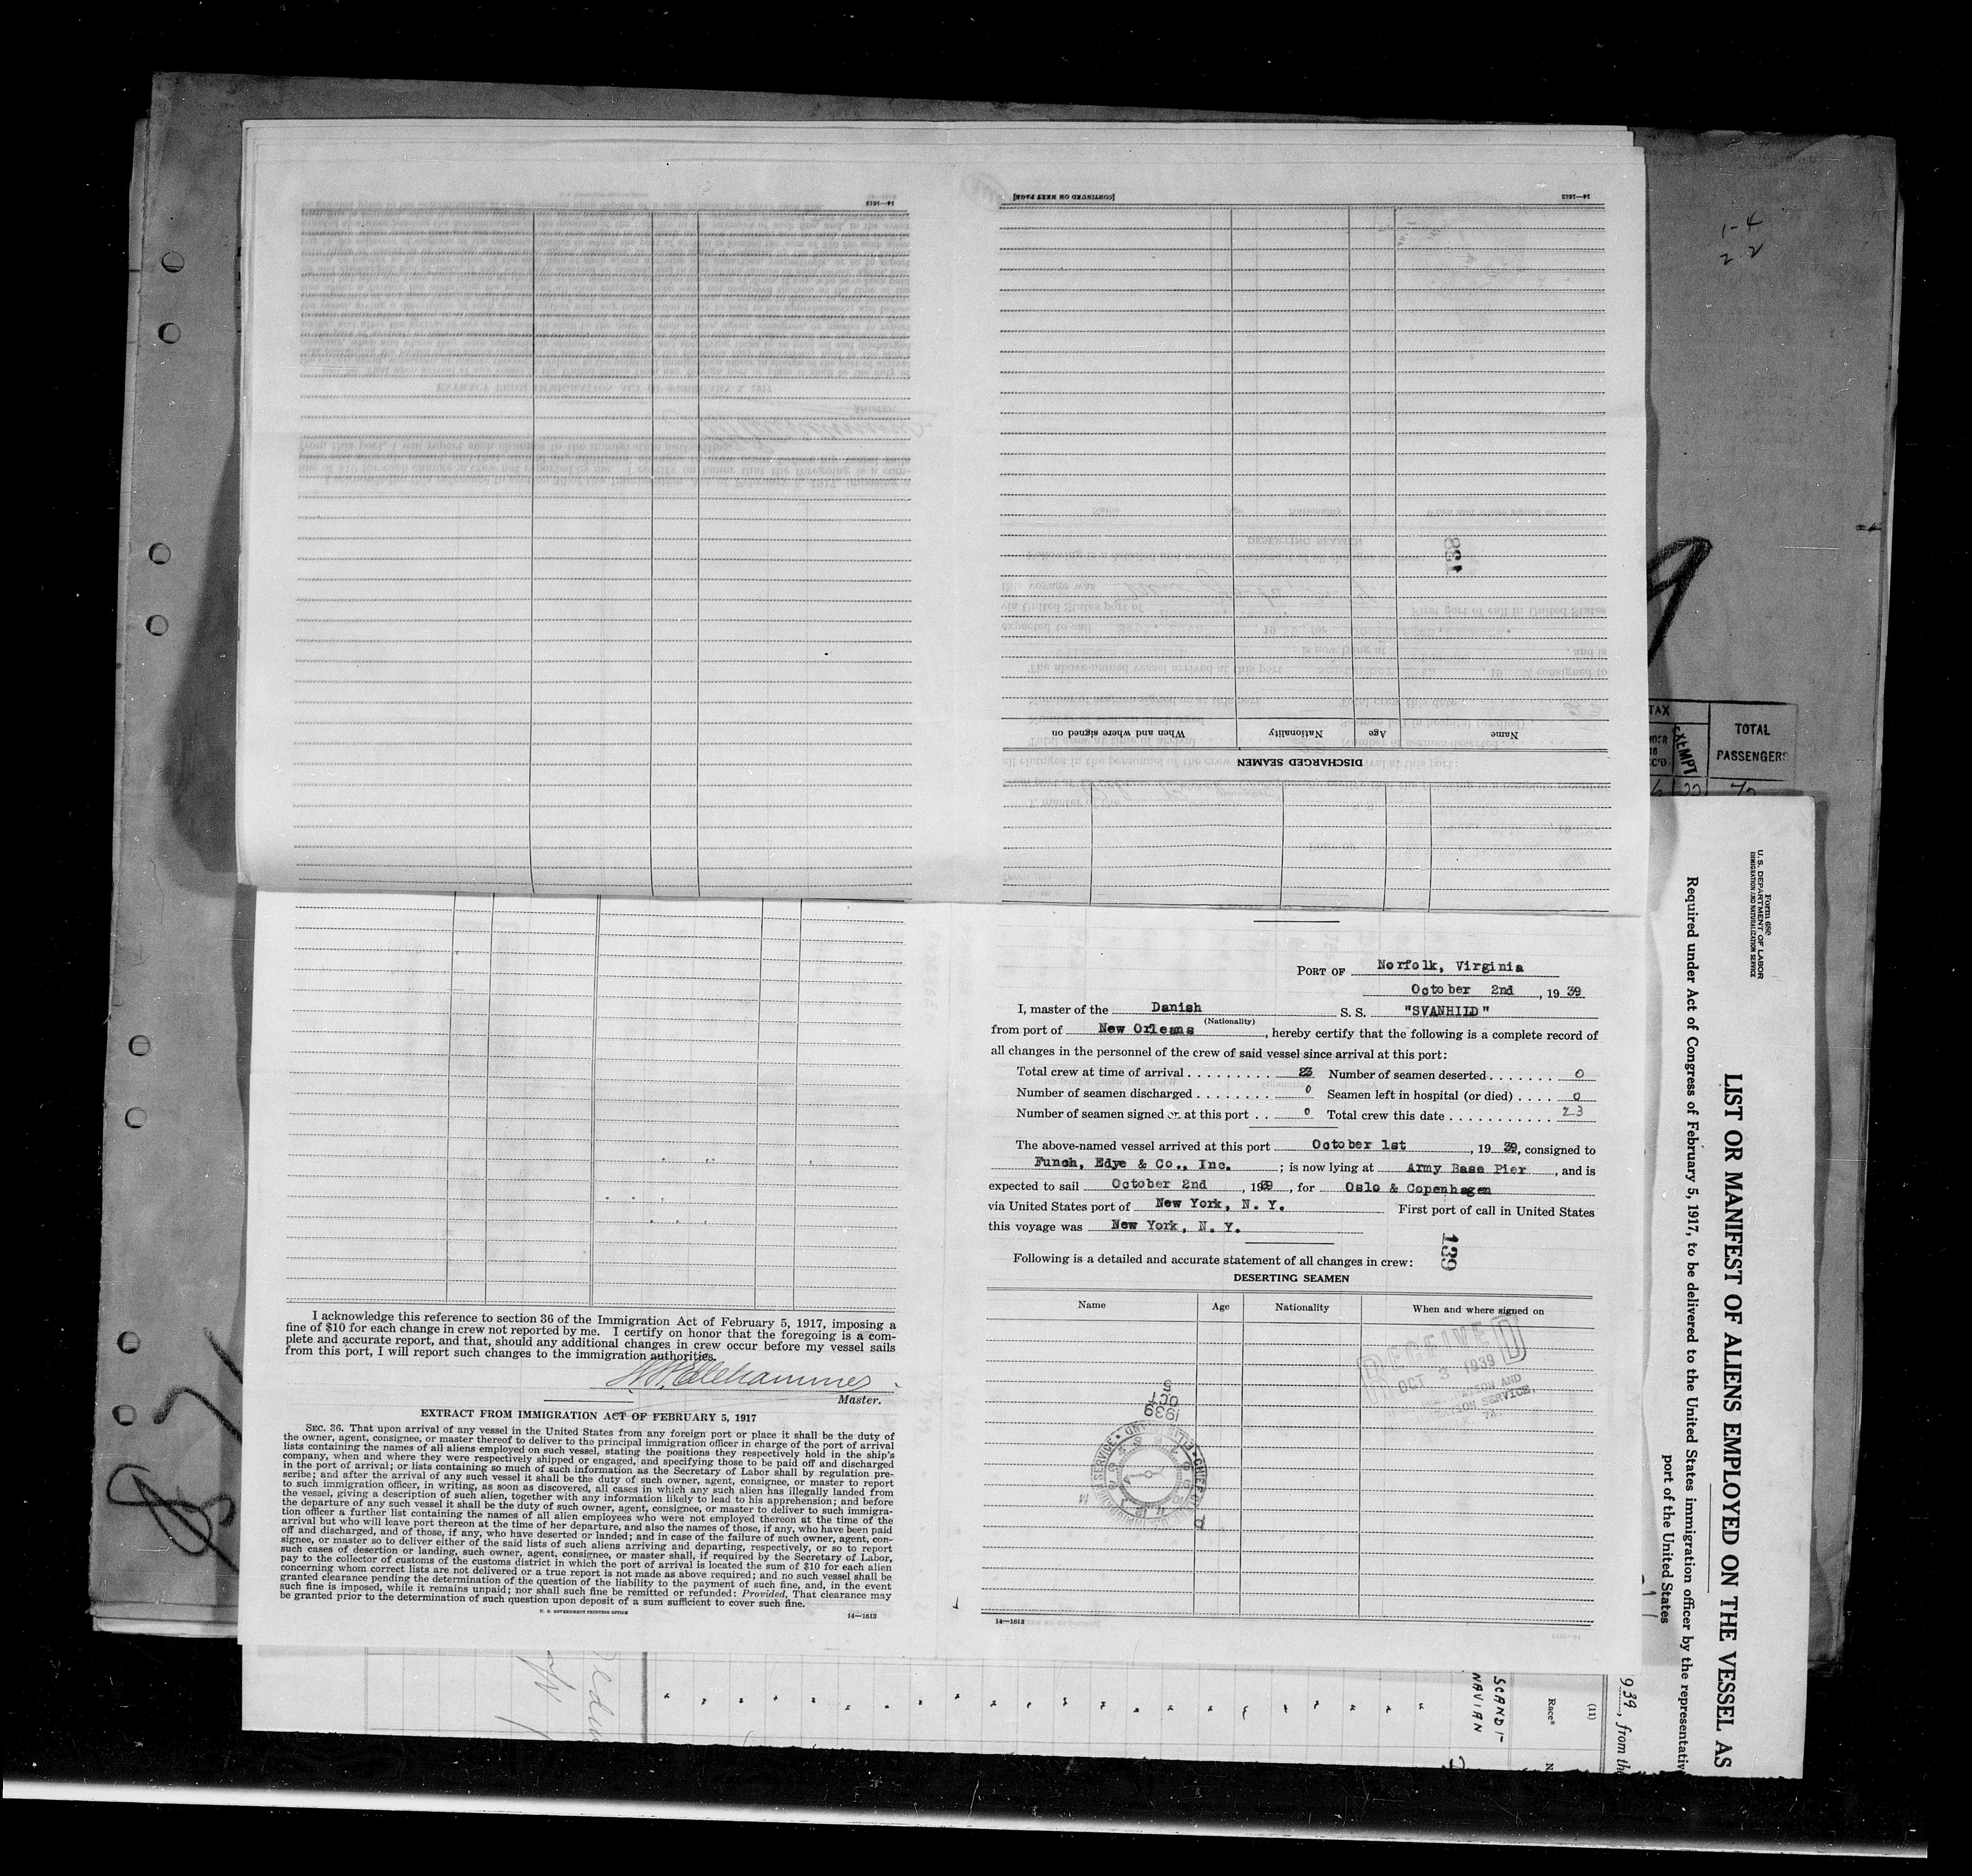 14—1613
[CONTINUED ON NEXT PAGE]
14—1613
1-4
2 2
138
Name
Age
Nationality
When and where signed on
DISCHARGED SEAMEN
TAX
EXEMPT
TOTAL
PASSENGERS
Form 680
U. S. DEPARTMENT OF LABOR
IMMIGRATION AND NATURALIZATION SERVICE
LIST OR MANIFEST OF ALIENS EMPLOYED ON THE VESSEL AS
Required under Act of Congress of February 5, 1917, to be delivered to the United States immigration officer by the representative
port of the United States
PORT OF Norfolk, Virginia
October 2nd, 1939
I, master of the Danish S. S. "SVANHILD"
(Nationality)
from port of New Orleans, hereby certify that the following is a complete record of
all changes in the personnel of the crew of said vessel since arrival at this port:
Total crew at time of arrival . . . . . . . . . . 23 Number of seamen deserted . . . . . . . 0
Number of seamen discharged . . . . . . . . 0 Seamen left in hospital (or died) . . . . 0
Number of seamen signed on at this port . . 0 Total crew this date . . . . . . . . . . . 23
The above-named vessel arrived at this port October 1st, 1939, consigned to
Funch, Edye & Co., Inc. ; is now lying at Army Base Pier, and is
expected to sail October 2nd, 1939, for Oslo & Copenhagen
via United States port of New York, N. Y. First port of call in United States
this voyage was New York, N. Y.
139
Following is a detailed and accurate statement of all changes in crew:
DESERTING SEAMEN
Name Age Nationality When and where signed on
RECEIVED
OCT 3 1939
1939
OCT
5
14—1613
I acknowledge this reference to section 36 of the Immigration Act of February 5, 1917, imposing a
fine of $10 for each change in crew not reported by me. I certify on honor that the foregoing is a com-
plete and accurate report, and that, should any additional changes in crew occur before my vessel sails
from this port, I will report such changes to the immigration authorities.
Master.
EXTRACT FROM IMMIGRATION ACT OF FEBRUARY 5, 1917
SEC. 36. That upon arrival of any vessel in the United States from any foreign port or place it shall be the duty of
the owner, agent, consignee, or master thereof to deliver to the principal immigration officer in charge of the port of arrival
lists containing the names of all aliens employed on such vessel, stating the positions they respectively hold in the ship's
company, when and where they were respectively shipped or engaged, and specifying those to be paid off and discharged
in the port of arrival; or lists containing so much of such information as the Secretary of Labor shall by regulation pre-
scribe; and after the arrival of any such vessel it shall be the duty of such owner, agent, consignee, or master to report
to such immigration officer, in writing, as soon as discovered, all cases in which any such alien has illegally landed from
the vessel, giving a description of such alien, together with any information likely to lead to his apprehension; and before
the departure of any such vessel it shall be the duty of such owner, agent, consignee, or master to deliver to such immigra-
tion officer a further list containing the names of all alien employees who were not employed thereon at the time of the
arrival but who will leave port thereon at the time of her departure, and also the names of those, if any, who have been paid
off and discharged, and of those, if any, who have deserted or landed; and in case of the failure of such owner, agent, con-
signee, or master so to deliver either of the said lists of such aliens arriving and departing, respectively, or so to report
such cases of desertion or landing, such owner, agent, consignee, or master shall, if required by the Secretary of Labor,
pay to the collector of customs of the customs district in which the port of arrival is located the sum of $10 for each alien
concerning whom correct lists are not delivered or a true report is not made as above required; and no such vessel shall be
granted clearance pending the determination of the question of the liability to the payment of such fine, and, in the event
such fine is imposed, while it remains unpaid; nor shall such fine be remitted or refunded: Provided, That clearance may
be granted prior to the determination of such question upon deposit of a sum sufficient to cover such fine.
U. S. GOVERNMENT PRINTING OFFICE 14—1613
SCANDI-
NAVIAN
Race*
(11)
939, from the